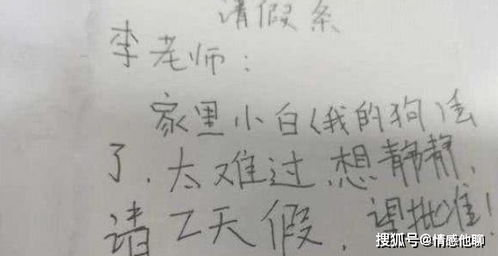 请假条
李老师：
家里小白(我的狗)去
了，太难过，想静静，
请2天假，请批准！
搜狐号@情感他聊